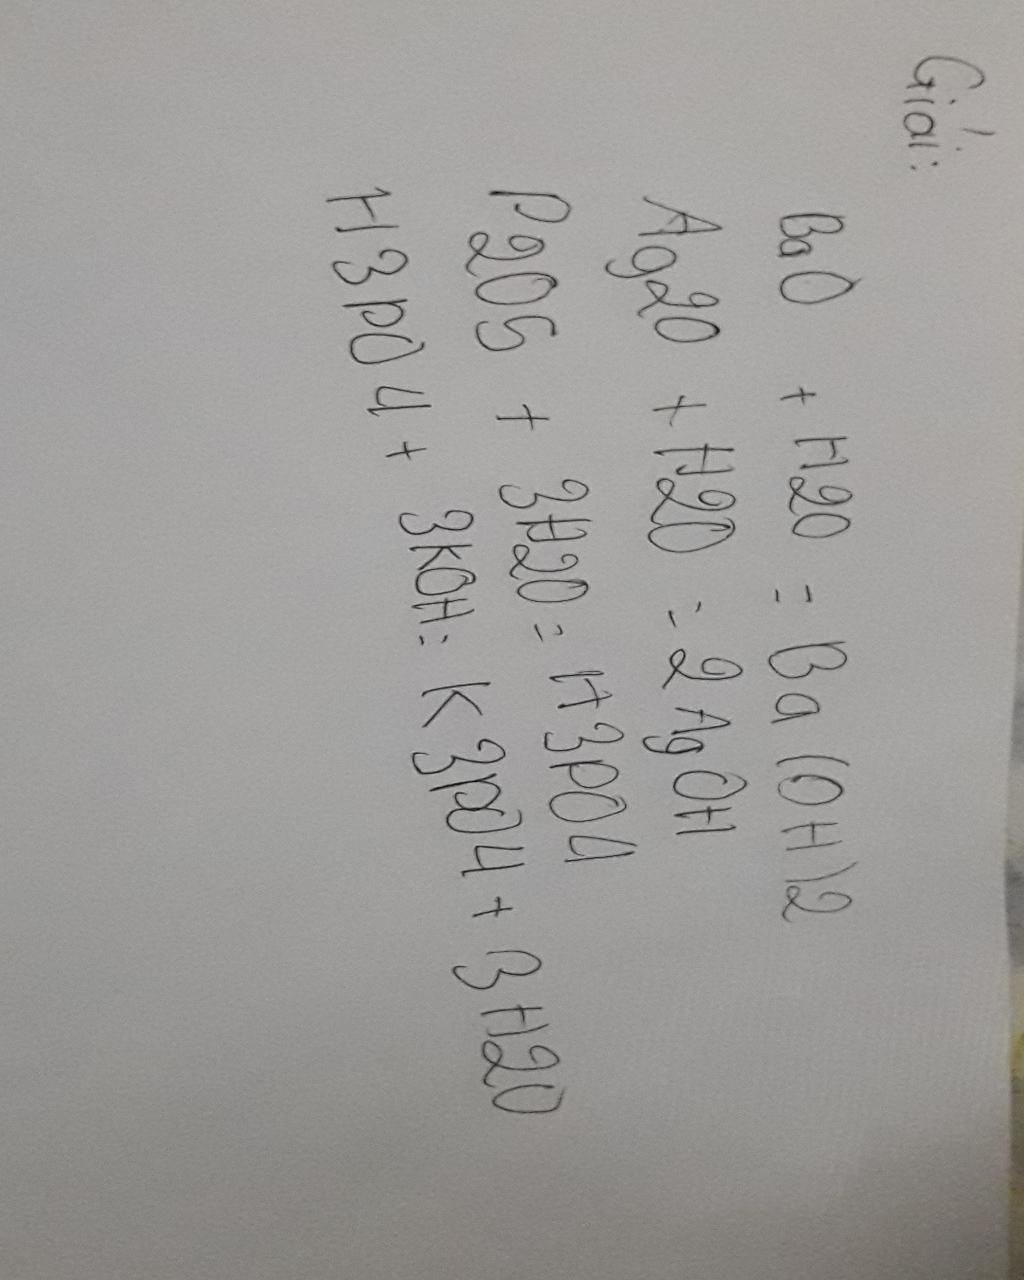 Giải:
BaO + H2O = Ba(OH)2
Ag2O + H2O = 2AgOH
P2O5 + 3H2O = H3pO4
H3pO4 + 3KOH = K3pO4 + 3H2O